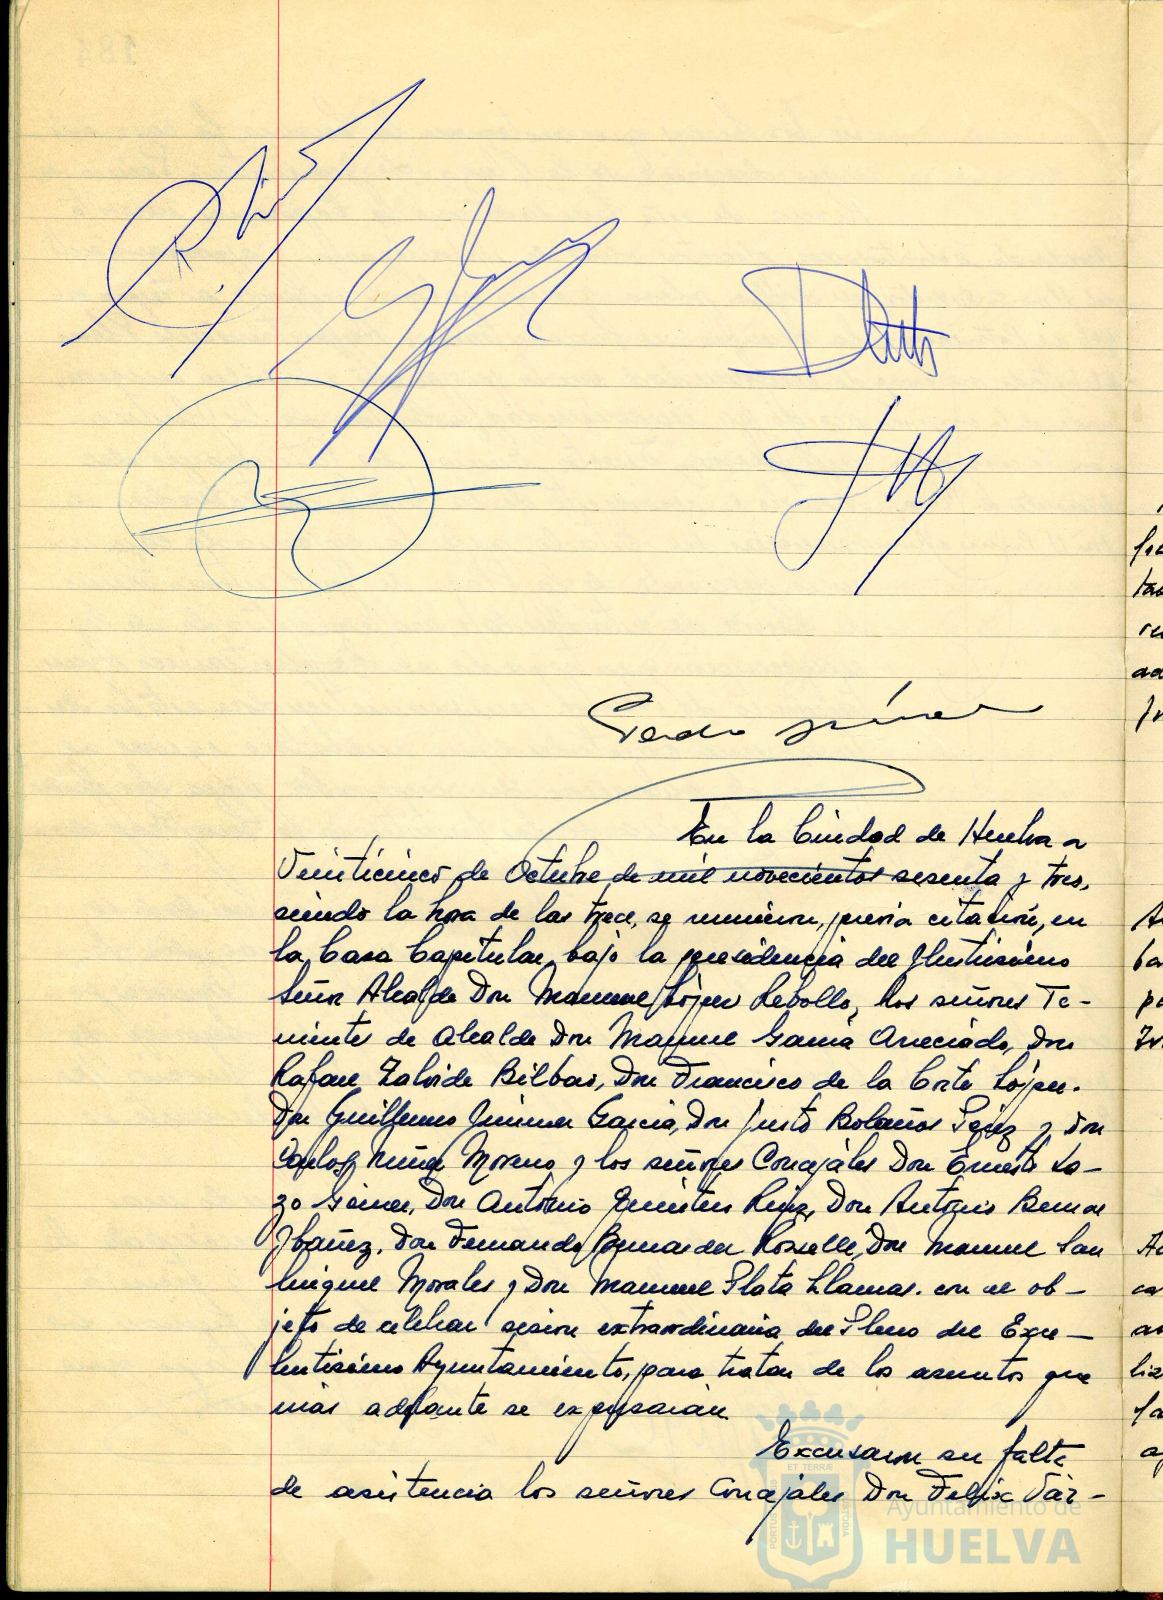 En la Ciudad de Huelva a
Veinticinco de Octubre de mil novecientos sesenta y tres,
siendo la hora de las trece, se reunieron, previa citación, en
la Casa Capitular, bajo la presidencia del Ilustrísimo
Señor Alcalde Don Manuel López Rebollo, los señores Te-
niente de Alcalde Don Manuel García Don
Rafael Bilbao, Don Francisco de la Corte López.
Don Guillermo Jimenez García, Don Justo Bolaños Perez y Don
Carlos Nuñez Moreno y los señores Concejales Don Ernesto La-
zo Don Antonio Ruiz, Don Antonio Bernal
Ibañez, Don Fernando Don Manuel San
Miguel Morales y Don Manuel Plata Llamas. con el ob-
jeto de celebrar sesion extraordinaria del Pleno del Exce-
lentísimo Ayuntamiento, para tratar de los asuntos que
más adelante se expresarán
Excusaron su falta
de asistencia los señores Concejales Don Felix
Ayuntamiento de
HUELVA